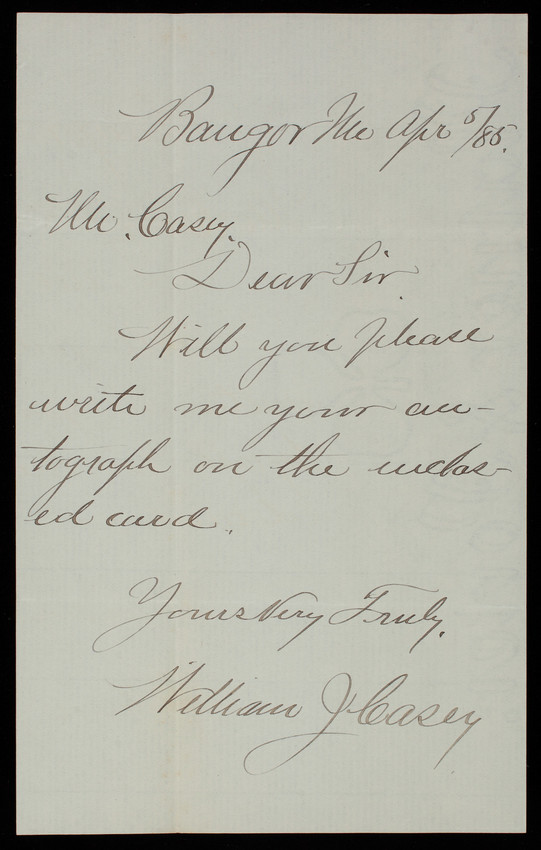 Bangor Me Apr 5/85.
Mr. Casey.
Dear Sir.
Will you please
write me your au-
tograph on the inclos-
ed card.
Yours Very Truly.
William J. Casey